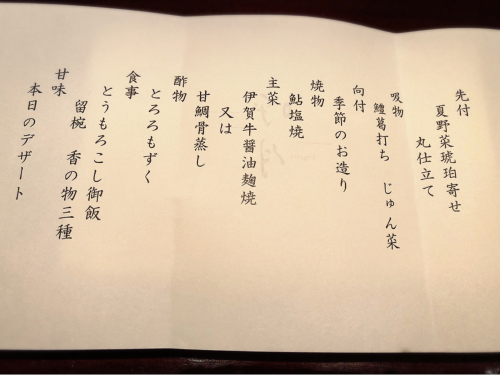 先付
夏野菜琥珀寄せ
丸仕立て
吸物
鱧葛打ち じゅん菜
向付
季節のお造り
焼物
鮎塩焼
主菜
伊賀牛醤油麹焼
又は
甘鯛骨蒸し
酢物
とろろもずく
食事
とうもろこし御飯
留椀 香の物三種
甘味
本日のデザート